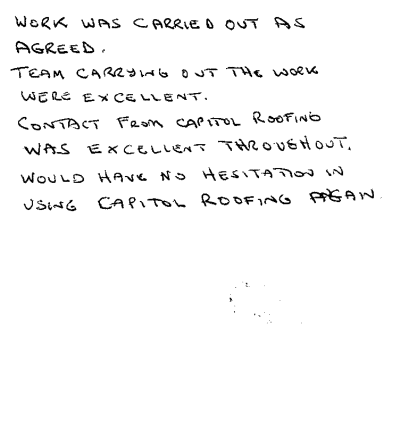 WORK WAS CARRIED OUT AS
AGREED.
TEAM CARRYING OUT THE WORK
WERE EXCELLENT.
CONTACT FROM CAPITOL ROOFING
WAS EXCELLENT THROUGHOUT.
WOULD HAVE NO HESITATION IN
USING CAPITOL ROOFING AGAIN.